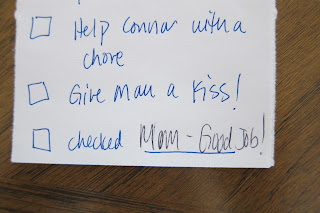 Help Connor with a
chore
Give Mom a Kiss!
checked Mom - Good Job!